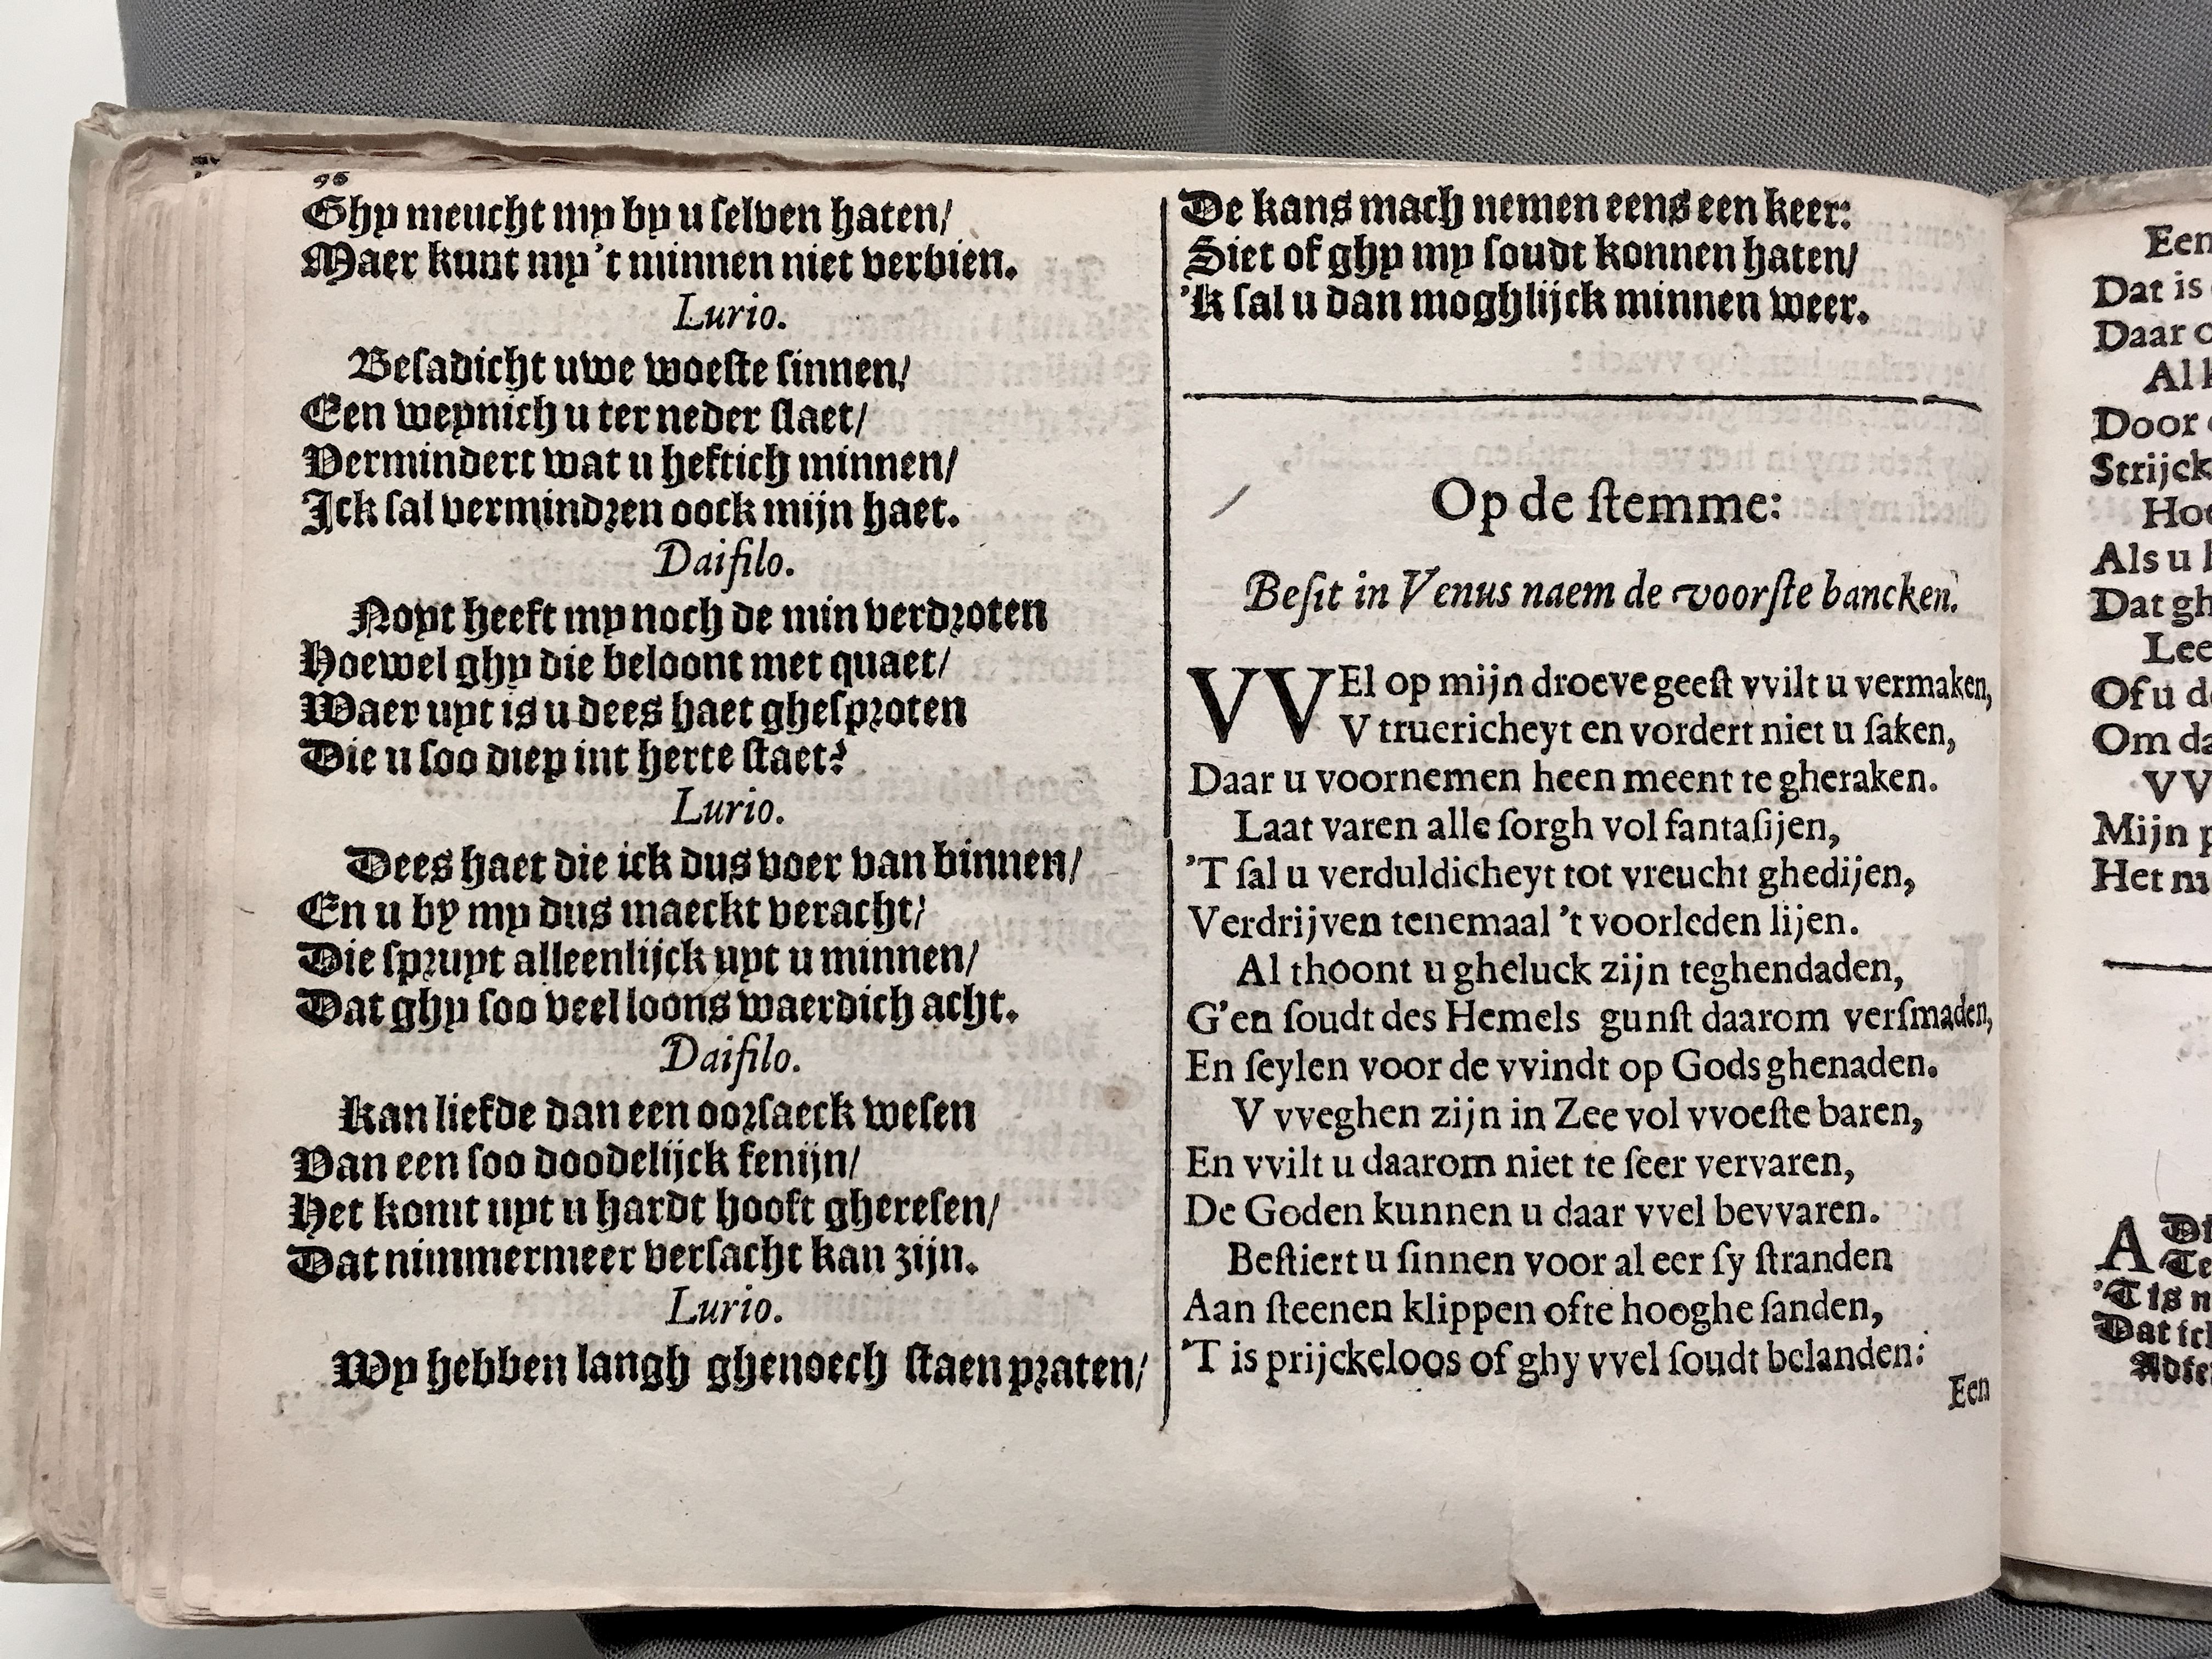 96
Ghy meucht my by u selven haten/
Maer kunt my 't minnen niet verbien.
Lurio.
Besadicht uwe woeste sinnen/
Een weynich u ter neder slaet/
Vermindert wat u heftich minnen/
Ick sal vermindren oock mijn haet.
Daifilo.
Noyt heeft my noch de min verdroten
Hoewel ghy die beloont met quaet/
Waer uyt is u dees haet ghesproten
Die u soo diep int herte staet?
Lurio.
Dees haet die ick dus voer van binnen/
En u by my dus maeckt veracht/
Die spruyt alleenlijck uyt u minnen/
Dat ghy soo veel loons waerdich acht.
Daifilo.
Kan liefde dan een oorsaeck wesen
Van een soo doodelijck fenijn/
Het komt uyt u hardt hooft gheresen/
Dat nimmermeer versacht kan zijn.
Lurio.
Wy hebben langh ghenoech staen praten/
De kans mach nemen eens een keer:
Siet of ghy my soudt konnen haten/
'K sal u dan moghlijck minnen weer.
Op de stemme:
Besit in Venus naem de voorste bancken.
VVEl op mijn droeve geest vvilt u vermaken,
V truericheyt en vordert niet u saken,
Daar u voornemen heen meent te gheraken.
Laat varen alle sorgh vol fantasijen,
'T sal u verduldicheyt tot vreucht ghedijen,
Verdrijven tenemaal 't voorleden lijen.
Al thoont u gheluck zijn teghendaden,
G'en soudt des Hemels gunst daarom versmaden,
En seylen voor de vvindt op Gods ghenaden.
V vveghen zijn in Zee vol vvoeste baren,
En vvilt u daarom niet te seer vervaren,
De Goden kunnen u daar vvel bevvaren.
Bestiert u sinnen voor al eer sy stranden
Aan steenen klippen ofte hooghe sanden,
'T is prijckeloos of ghy vvel soudt belanden:
Een
Een
Dat is
Daar
Al
Door
Strijck
Hoe
Als u
Dat gh
Lee
Of u d
Om da
VV
Mijn
Het
A
'T is
Dat ick